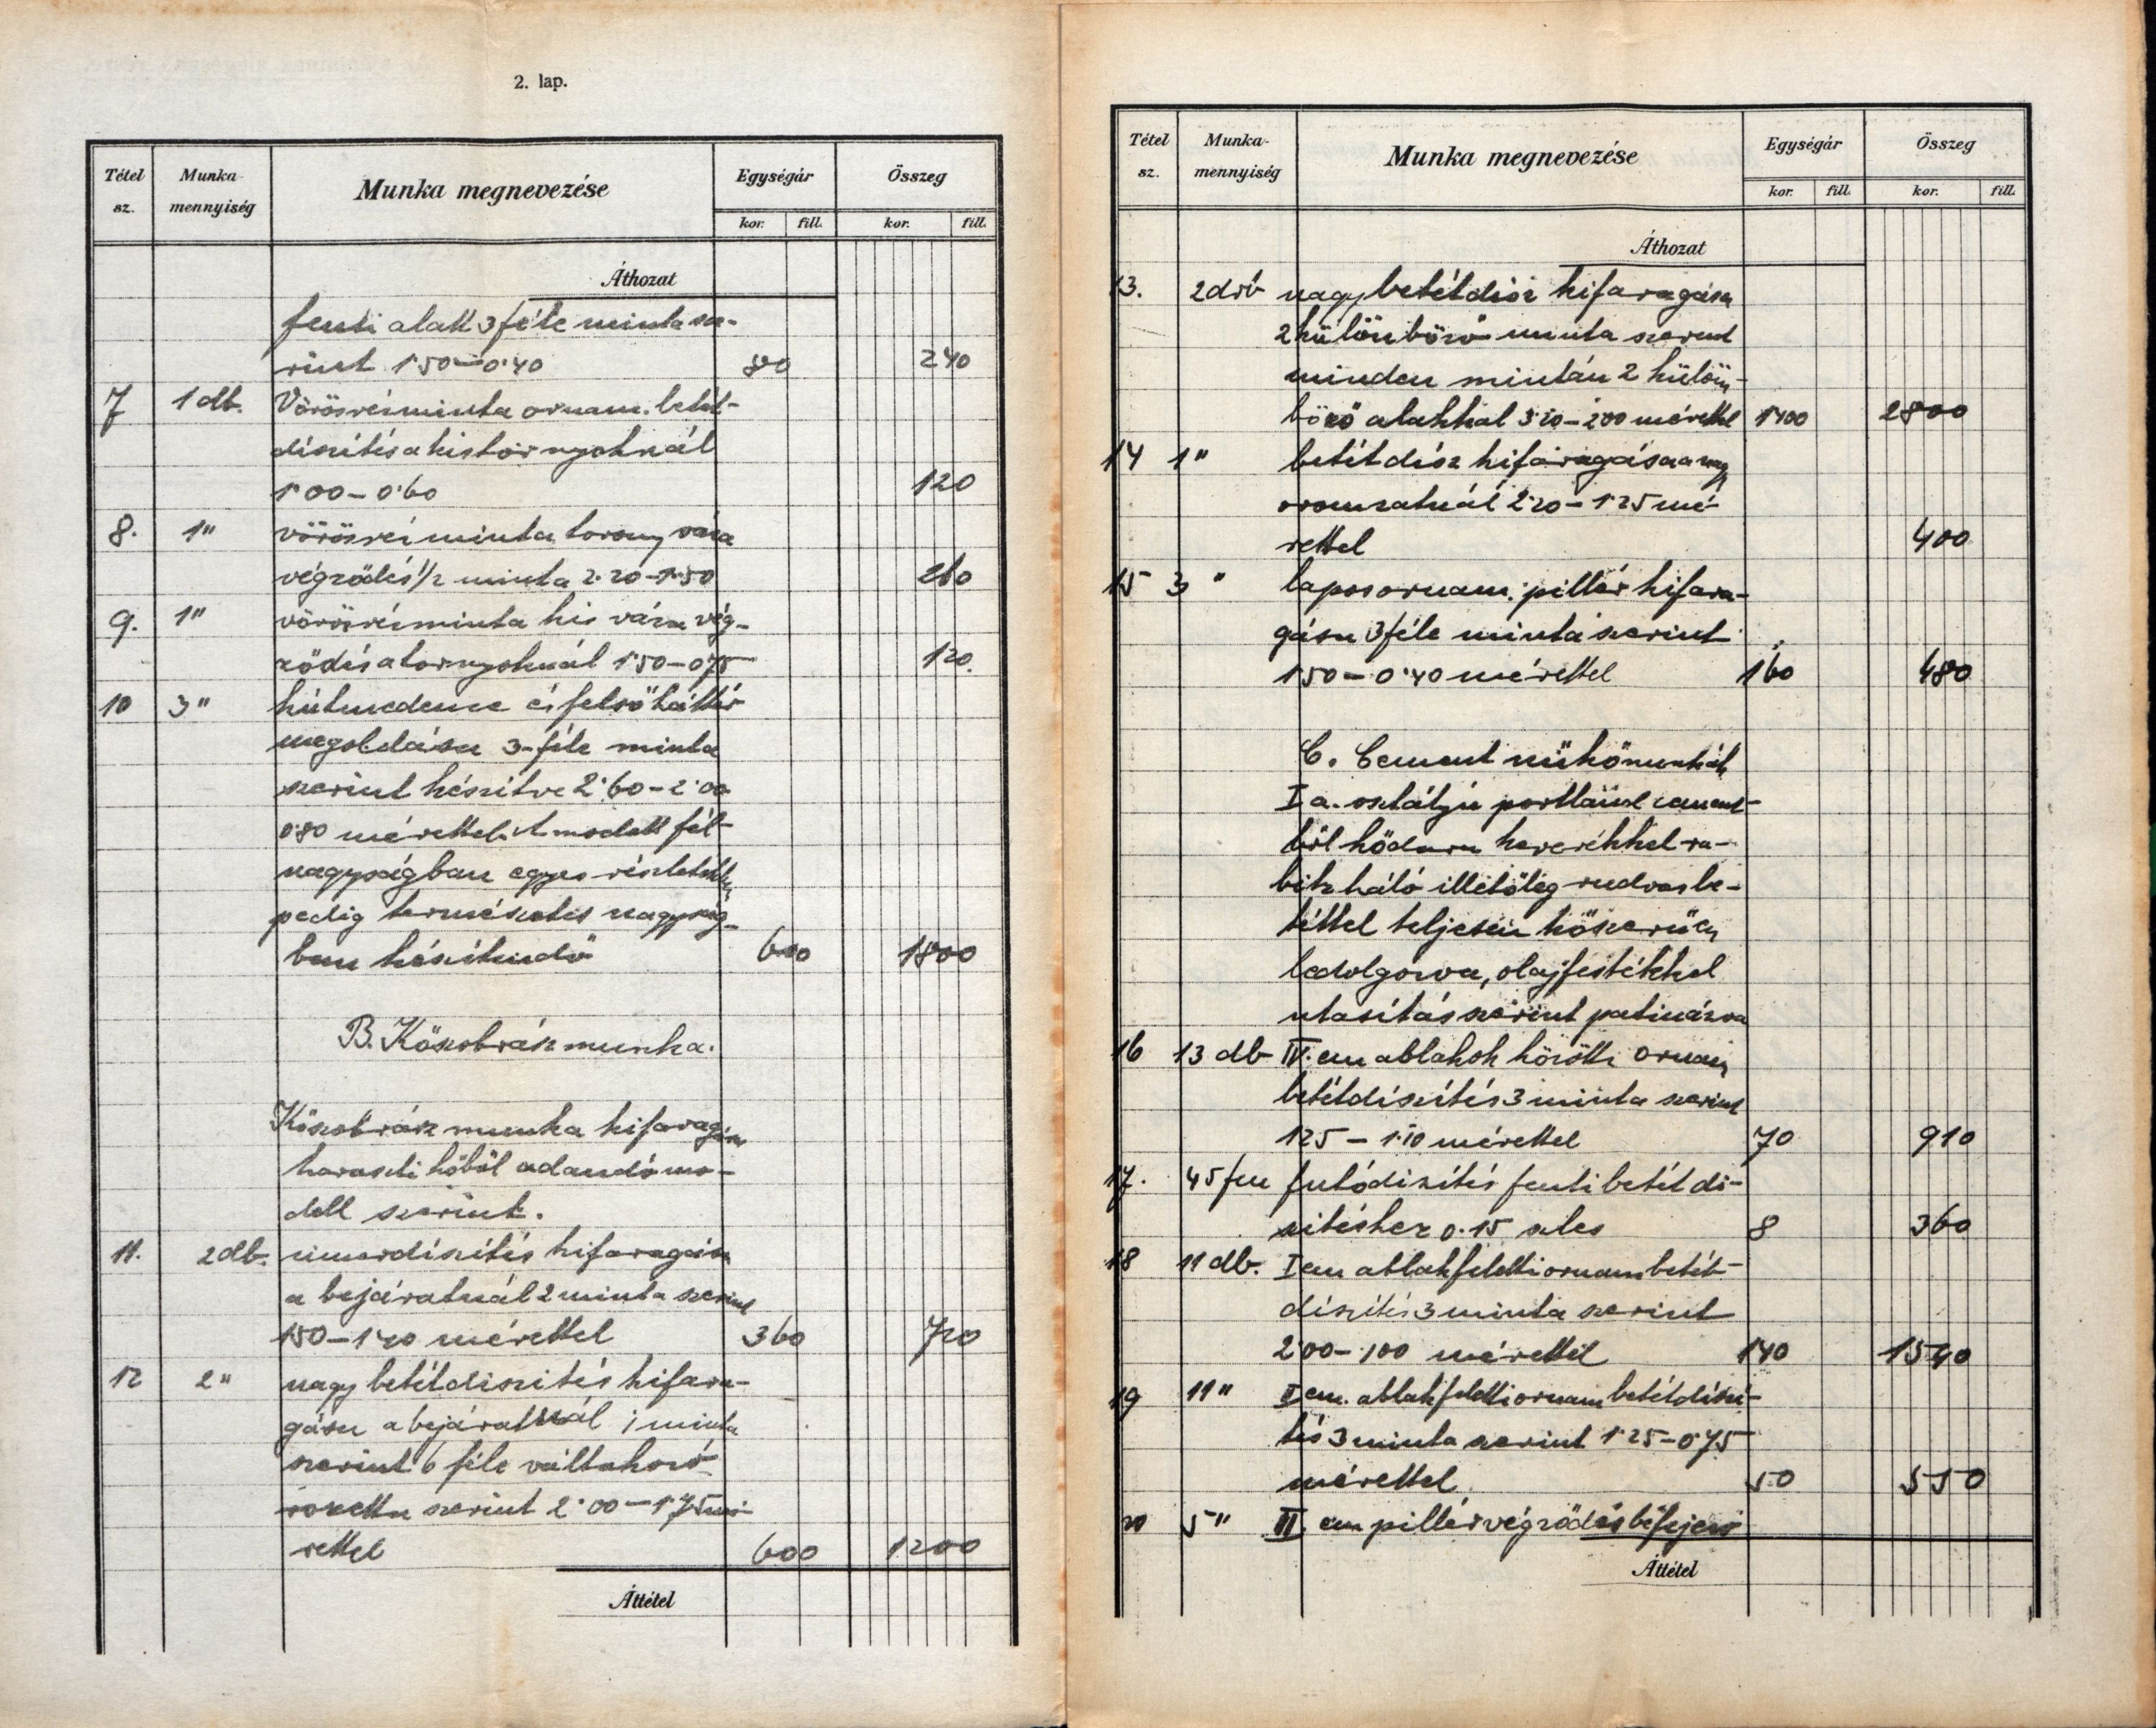 2. lap.
Tétel sz. Munka-mennyiség Munka megnevezése Egységár Összeg
kor. fill. kor. fill.
Áthozat
fenti alatt 3 féle minta sze-
rint 1·50–0·40 80 240
7 1 db. Vörösréz minta ornam. betét-
díszítés a kis tornyoknál
1·00–0·60 120
8. 1 " vörösréz minta torony váza
végződés 1/2 minta 2·20–1·50 260
9. 1 " vörösréz minta kis váza vég-
ződés a tornyoknál 1·50–0·75 120.
10 3 " kútmedence és felső háttér
megoldása 3-féle minta
szerint készítve 2·60–2·00
0·80 mérettel. A modell fél-
nagyságban egyes részletekben
pedig természetes nagyság-
ban készítendő 600 1800
B. Kőszobrász munka.
Kőszobrász munka kifaragása
haraszti kőből adandó mo-
dell szerint.
11. 2 db. díszítés kifaragása
a bejáratnál 2 minta szerint
150–1·20 mérettel 360 720
12 2 " nagy betétdíszítés kifara-
gása a bejáratnál 1 minta
szerint 6 féle váltakozó
rozetta szerint 2·00–1·75 mé-
rettel 600 1200
Áttétel
Tétel sz. Munka-mennyiség Munka megnevezése Egységár Összeg
kor. fill. kor. fill.
Áthozat
13. 2 drb nagy betétdísz kifaragása
2 különböző minta szerint
minden mintán 2 külön-
böző alakkal 3·20–2·00 mérettel 1400 2800
14 1 " betétdísz kifaragása a nagy
oromzatnál 2·20–1·25 mé-
rettel 400
15 3 " lapos ornam. pillér kifara-
gása 3 féle minta szerint
1·50–0·40 mérettel 160 480
C. Cement műkőmunkák
I a. osztályú portland cement-
ből kődara keverékkel ra-
bitz háló illetőleg rudvas be-
téttel teljesen kőszerűen
ledolgozva, olajfestékkel
utasítás szerint patinázva
16 13 db IV. em ablakok közötti ornam
betétdíszítés 3 minta szerint
125–1·10 mérettel 70 910
17. 45 fm futódíszítés fenti betét dí-
szítéshez 0.15 szles 8 360
18 11 db. I em ablakfeletti ornam betét-
díszítés 3 minta szerint
2·00–1·00 mérettel 140 1540
19 11 " I em. ablakfeletti ornam betétdíszí-
tés 3 minta szerint 1·25–0·75
mérettel 50 550
20 5 " II em pillér végződés befejező
Áttétel